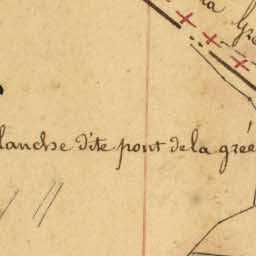 la Gr
lanche dite pont de la grée